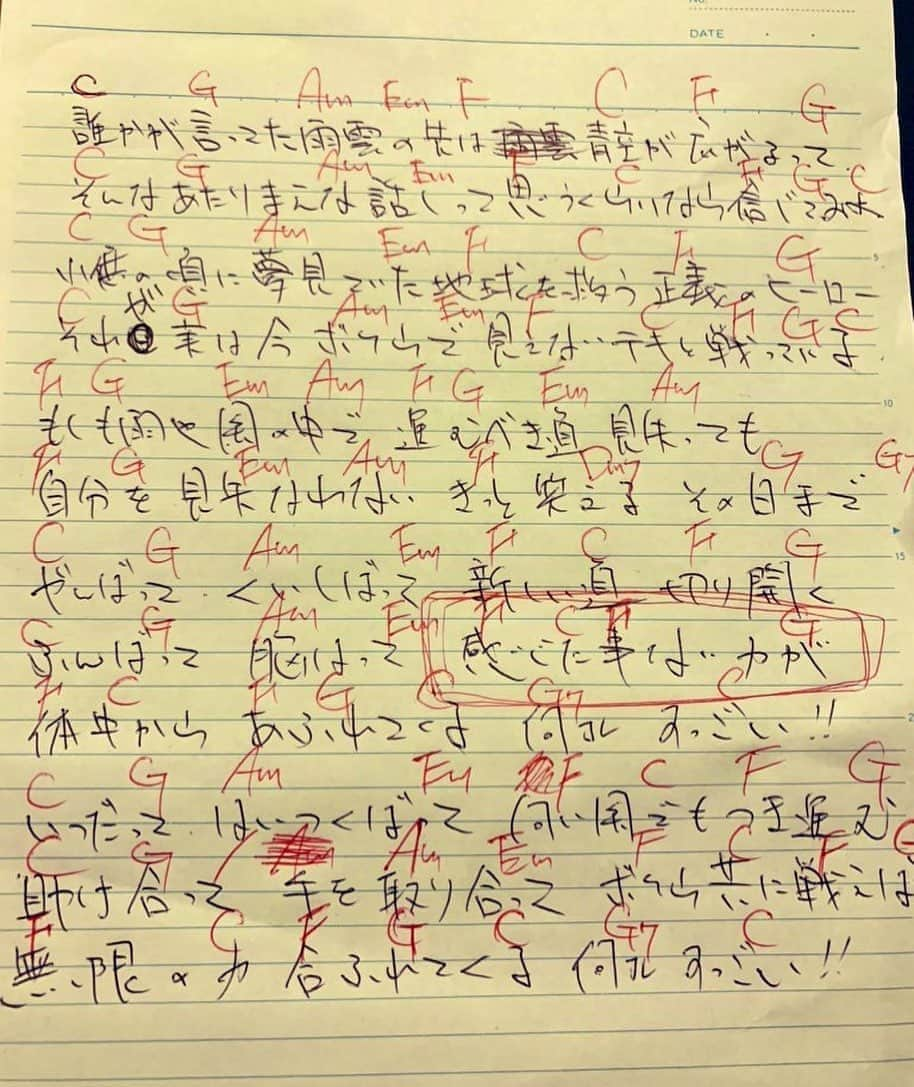 DATE
C G Am Em F C F G
誰かが言ってた雨雲の先は 青空が広がるって
C G Am Em F C F G C
そんなあたりまえな話しって思うくらいなら信じてみよ
C G Am Em F C F G
小さい頃に夢見でいた地球を救う正義のヒーロー
C G Am Em F C F G C
それが実は今ボクらで見えないテキと戦っている
F G Em Am F G Em Am
もしも雨や風の中で 進むべき道 見失っても
F G Em Am F Dm7 G G7
自分を見失なわない きっと笑える その日まで
C G Am Em F C F G
がんばって くいしばって 新しい道 切り開く
C G Am Em F C F G
ふんばって 胸はって 感じた事ない力が
F C F G C G7 C
体中から あふれてくる 何コレ すっごい!!
C G Am Em F C F G
いつだって はいつくばって 向い風でもつき進む
C G Am Em F C F G
助け合って 手を取り合って ボクら共に戦えば
F C F G C G7 C
無限の力 合ふれてくる 何コレ すっごい!!